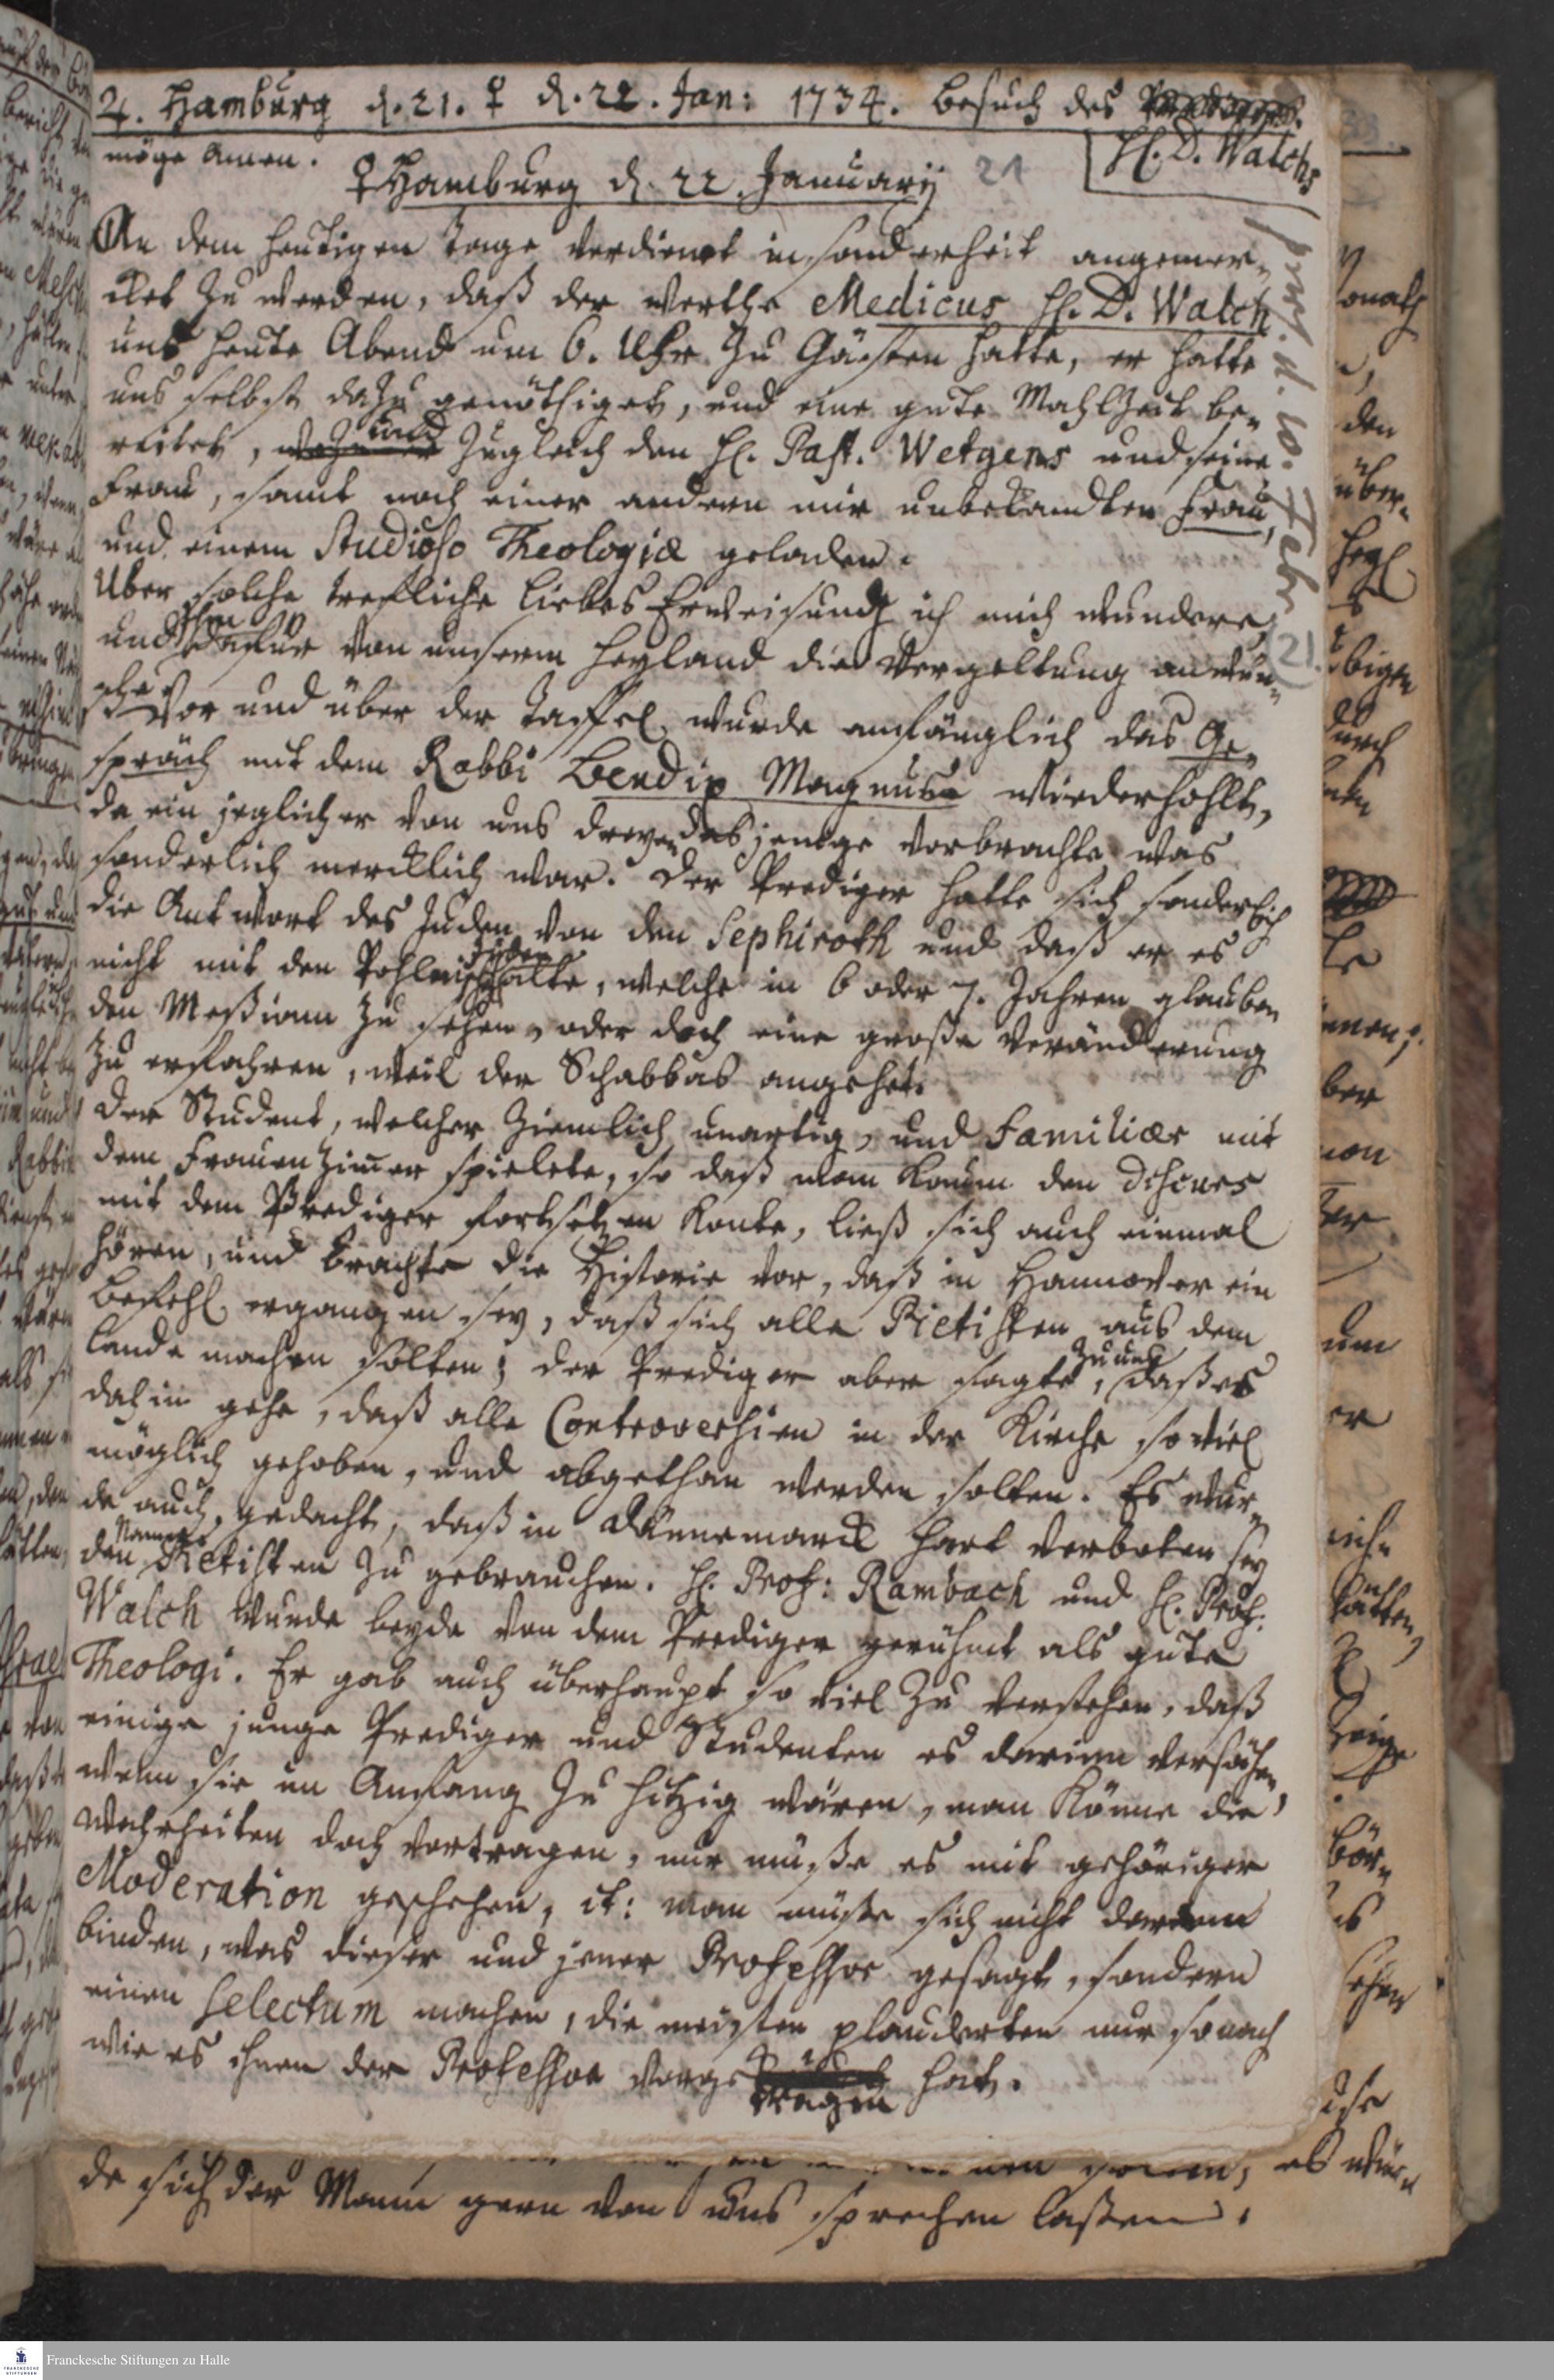 ♃. Hamburg d. 21. ♀ d. 22. Jan: 1734. Besuch des
H. D. Walchs
möge amen.
♀ Hamburg d. 22. Januarij 21
An dem heutigen Tage verdienet insonderheit angemer-
cket zu werden, daß der werthe Medicus H. D. Walch
uns heute Abend um 6. Uhr zu Gästen hatte, er hatte
uns selbst dazu genöthiget, und eine gute Mahlzeit be-
reitet, und zugleich den H. Past. Wetgens und seine
Frau, samt noch einer andern mir unbekandten Frau,
und einem Studioso Theologiæ geladen.
Uber solche trefliche Liebes Erweisung ich mich wundere,
und Ihm dafür von unserm Heyland die Vergeltung anwün-
sche. Vor und über der Taffel wurde anfänglich das Ge-
spräch mit dem Rabbi Bendix Magnus wiederhohlt,
da ein jeglicher von uns dreyen dasjenige vorbrachte was
sonderlich mercklich war. Der Prediger hatte sich sonderlich
die Antwort des Juden von den Sephiroth und daß er es
nicht mit den Pohlnisch Juden halte, welche in 6 oder 7. Jahren glauben
den Meßiam zu sehen, oder doch eine große Veränderung
zu erfahren, weil der Schabbas angehet.
Der Student, welcher ziemlich unartig, und familiær mit
dem Frauenzimmer spielete, so daß man kaum den discurs
mit dem Prediger fortsetzen konte, ließ sich auch einmal
hören, und brachte die Historie vor, daß in Hannover ein
Befehl ergangen sey, daß sich alle Pietisten aus dem
Lande machen solten; der Prediger aber sagte zu uns, daß es
dahin gehe, daß alle Controversien in der Kirche so viel
möglich gehoben, und abgethan werden solten. Es wur-
de auch gedacht, daß in Dännemarck hart verboten sey
den Namen Pietisten zu gebrauchen. H. Prof: Rambach und H. Prof.
Walch wurde beyde von dem Prediger gerühmt als gute
Theologi. Er gab auch überhaupt so viel zu verstehen, daß
einige junge Prediger und Studenten es darinn versähen,
wenn sie im Anfang zu hitzig wären, man könne die
Wahrheiten doch vortragen, nur müße es mit gehöriger
Moderation geschehen, it: man müße sich nicht daran
binden, was dieser und jener Professor gesagt, sondern
einen selectum machen, die meisten plauderten nur so nach
wie es ihnen der Professor vorgetragen hat.
d. 10. Febr.
21.
de sich der Mann gern von uns sprechen laßen.
Franckesche Stiftungen zu Halle